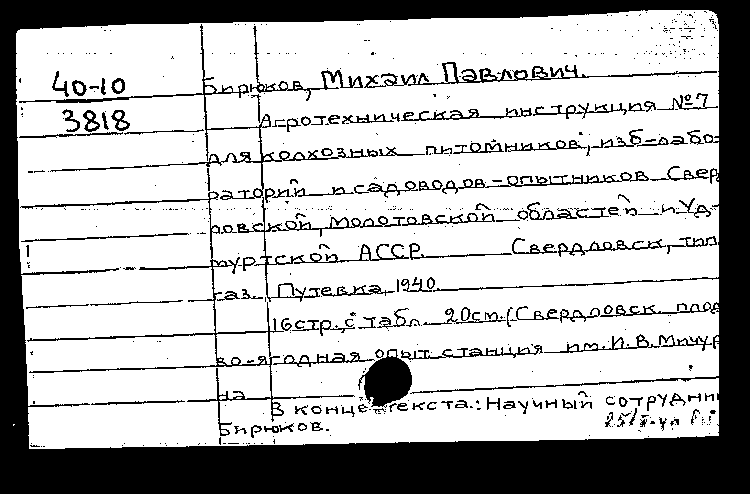 40-10
3818
Бирюков, Михаил Павлович.
Агротехническая инструкция №7
для колхозных питомников, изб-лабо-
раторий и садоводов-опытников Сверд
ловской, Молотовской областей и Уд-
муртской АССР. Свердловск, тип.
газ. Путевка, 1940.
16стр. с табл. 20см. (Свердловск. плод
во-ягодная опыт. станция им. И. В. Мичур
на
В конце текста.: Научный сотрудни
Бирюков.